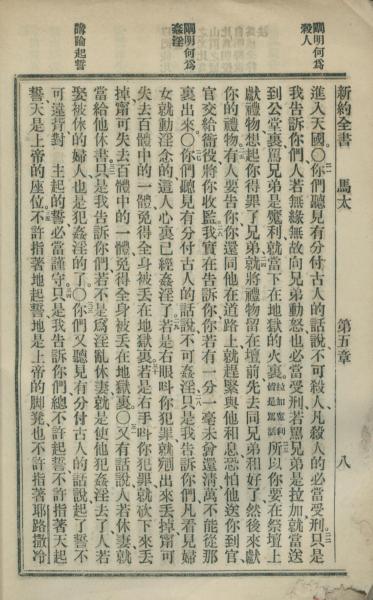 新約全書 馬太 第五章 八
闡明何爲殺人
闡明何爲姦淫
禁論起誓
進入天國〇你們聽見有分付古人的話說不可殺人凡殺人的必當受刑只是
我告訴你們人若無緣無故向兄弟動怒也必當受刑若罵兄弟是拉加就當送
到公堂裏罵兄弟是魔利就當下在地獄的火裏拉加魔利皆是罵話所以你要在祭壇上
獻禮物想起你得罪了兄弟就將禮物留在壇前先去同兄弟和好了然後來獻
你的禮物有人要告你你還同他在道路上就趕緊與他和息恐怕他送你到官
官交給衙役將你收監我實在告訴你你若有一分一毫未曾還淸萬不能從那
裏出來〇你們聽見有分付古人的話說不可姦淫只是我告訴你們凡看見婦
女就動淫念的這人心裏已經姦淫了若是右眼呌你犯罪就剜出來丢掉甯可
失去百體中的一體免得全身被丢在地獄裏若是右手呌你犯罪就砍下來丢
掉甯可失去百體中的一體免得全身被丢在地獄裏〇又有話說人若休妻就
當給他休書只是我告訴你們若不是爲淫亂休妻就是使他犯姦淫去了人若
娶被休的婦人也是犯姦淫的了〇你們又聽見有分付古人的話說起了誓不
可違背對 主起的誓必當謹守只是我告訴你們總不許起誓不許指著天起
誓天是上帝的座位不許指著地起誓地是上帝的脚凳也不許指著耶路撒冷